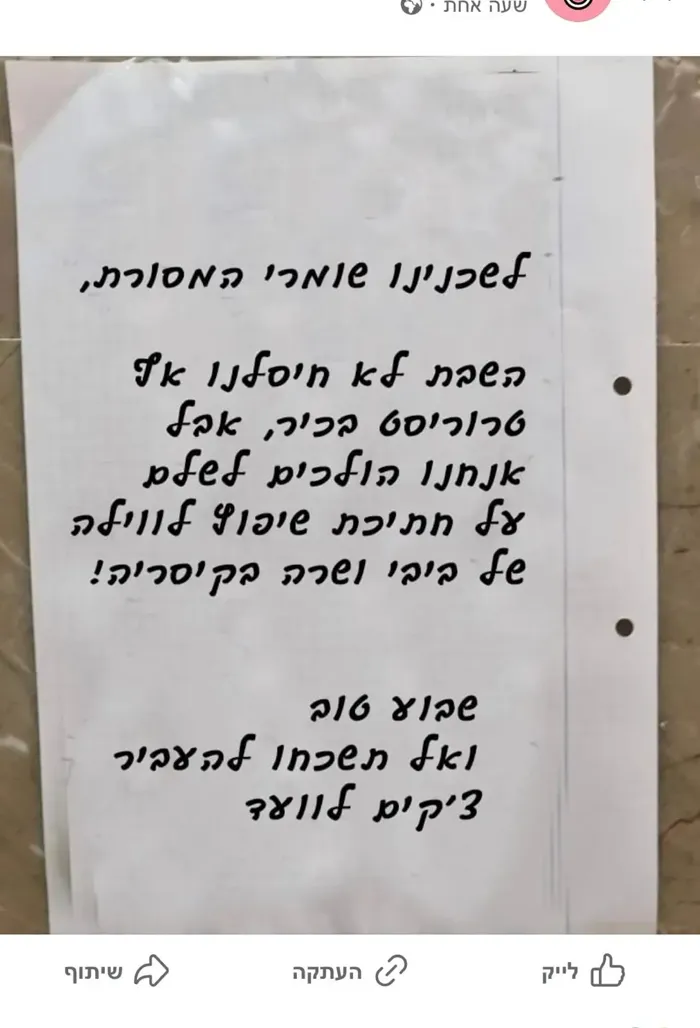 שעה אחת ·
לשכנינו שומרי המסורת,
השבת לא חיסלנו אף
טרוריסט בכיר, אבל
אנחנו הולכים לשלם
על חתיכת שיפוץ לווילה
של ביבי ושרה בקיסריה!
שבוע טוב
ואל תשכחו להעביר
צ'קים לוועד
לייק
העתקה
שיתוף